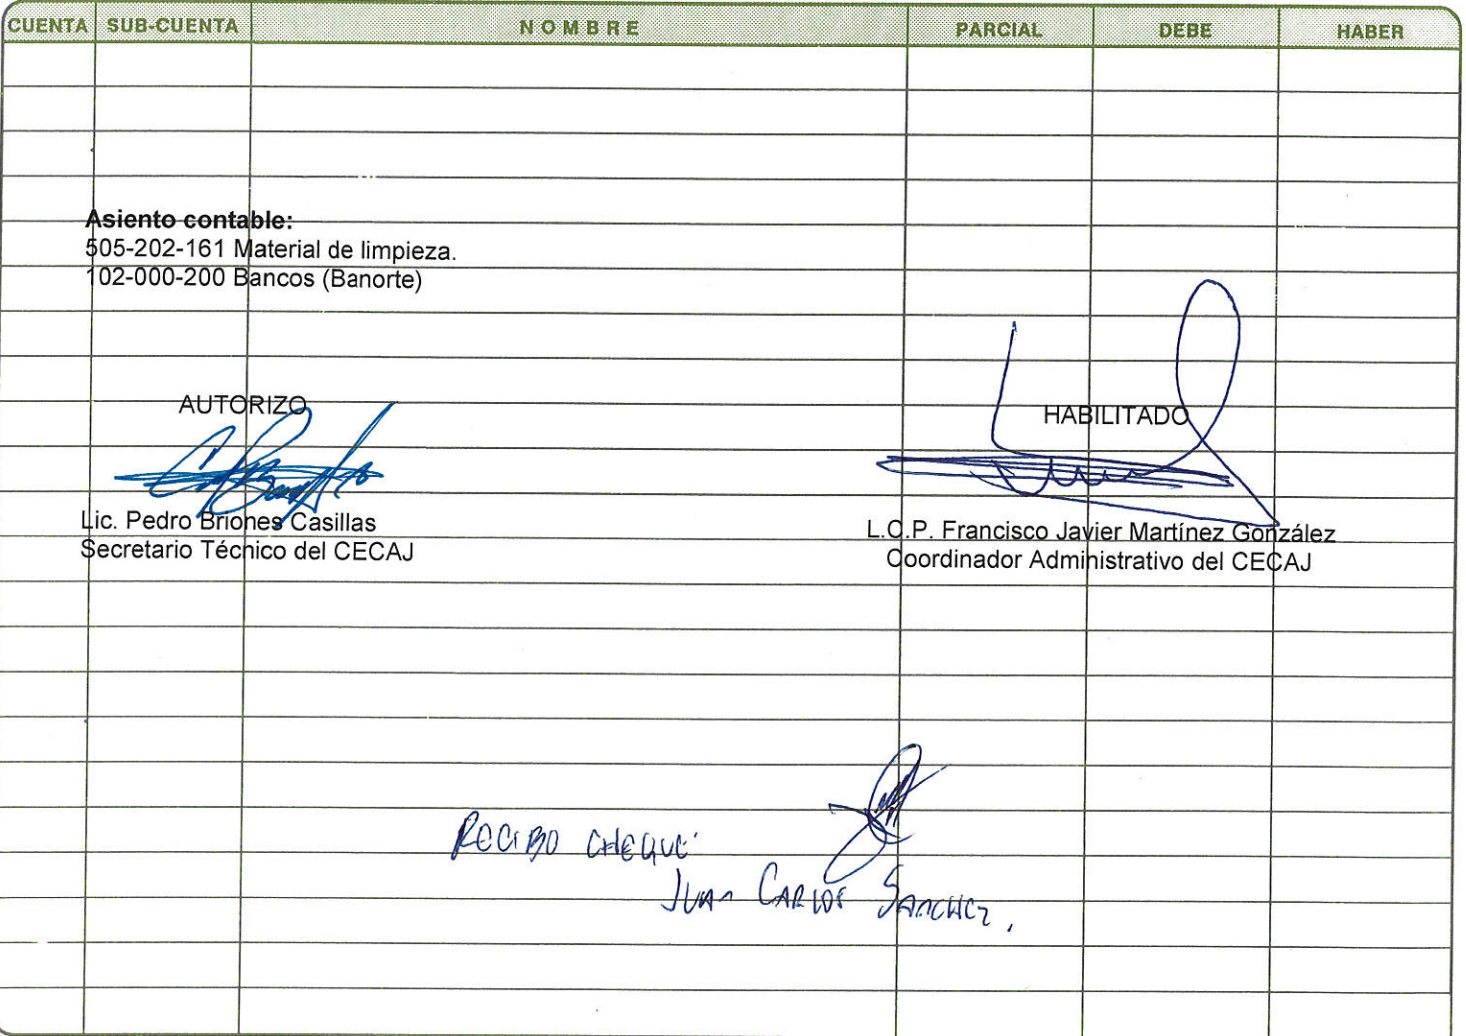 CUENTA SUB-CUENTA NOMBRE PARCIAL DEBE HABER
Asiento contable:
505-202-161 Material de limpieza.
102-000-200 Bancos (Banorte)
AUTORIZO
HABILITADO
Lic. Pedro Briones Casillas
Secretario Técnico del CECAJ
L.C.P. Francisco Javier Martínez González
Coordinador Administrativo del CECAJ
RECIBO CHEQUE
JUAN CARLOS SANCHEZ.